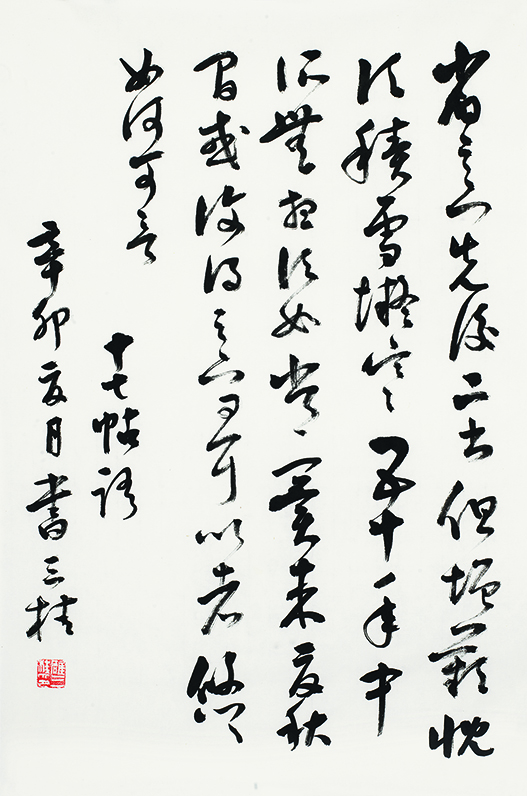 省足下先後二書但增歎慨
頃積雪凝寒五十年中
所無想頃如常冀來夏秋
間或復得足下問耳比者悠悠
如何可言
十七帖語
辛卯夏月書三桂